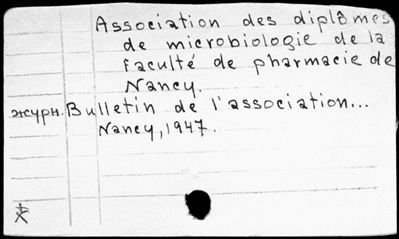 Association des diplômes
de microbiologie de la
Faculté de pharmacie de
Nancy.
журн. Bulletin de l'association...
Nancy, 1947.